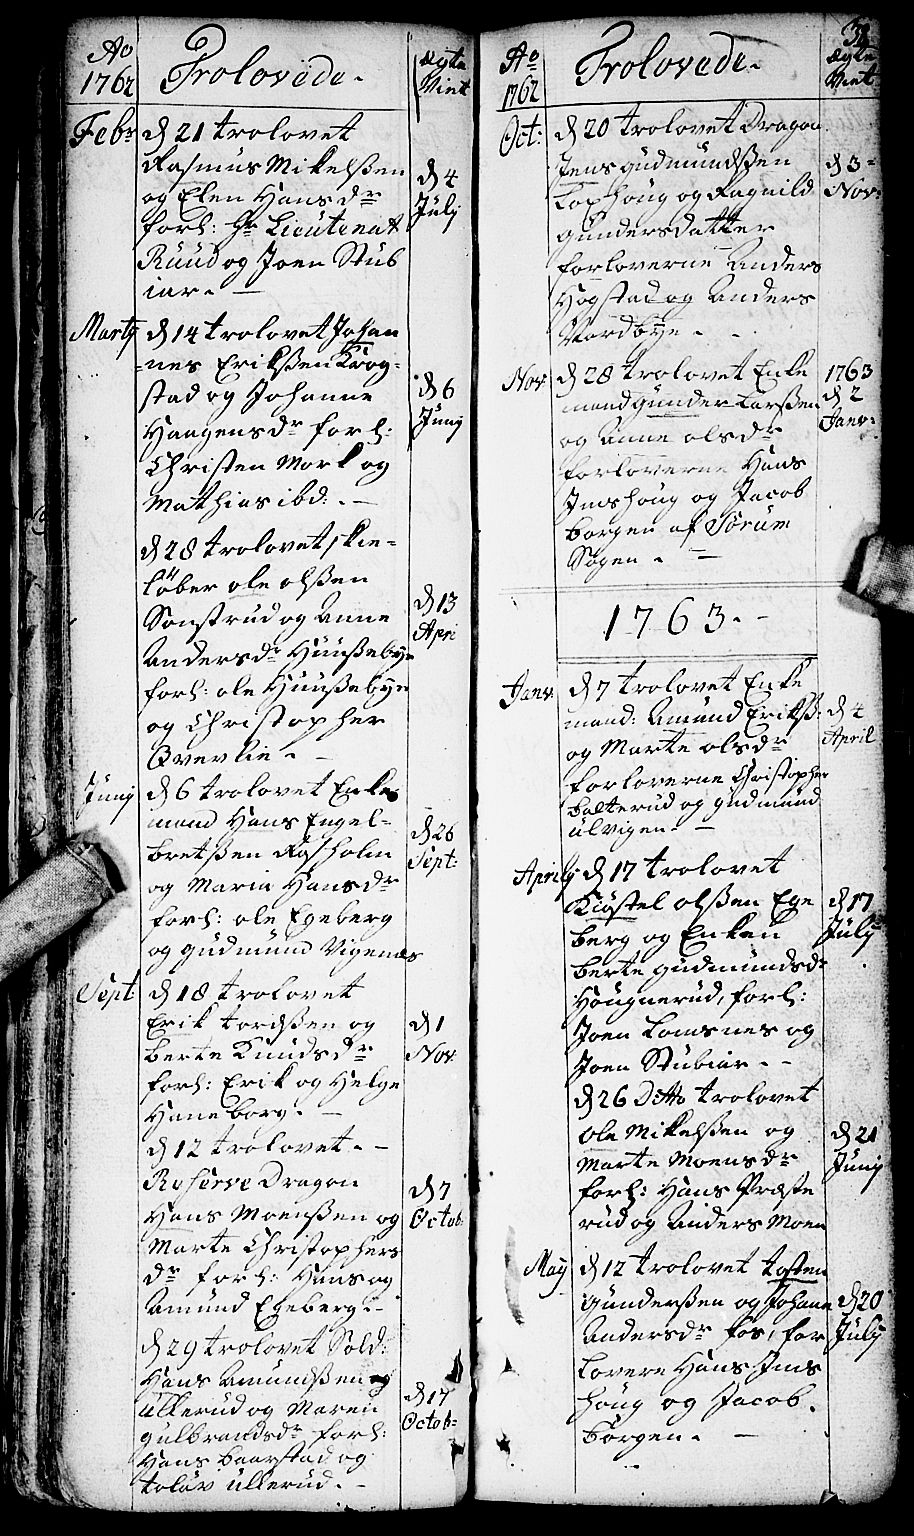 Ao
1762
Trolovede.
ægte
Viet
Febr
d 21 trolovet
Rasmus Mikelßen
og Elen Hansdr
forl: Hr Lieutenat
Ruud og Joen Stub
iar.
d 4
Julj
Martj
d 14 trolovet Johan
=nes Erikßen Krog=
stad og Johanne
Haagensdr forl:
Christen Mork og
Matthias ibd:.
d 6
Junj
d 28 trolovet skie=
löber ole olßen
Sonstrud og Anne
Andersdr Huußebye
forl: ole Huußebye
og Christopher
Överlie.
d 13
Apri
Junj
d 6 trolovet Enke
mand Hans Engel=
bretßen Rasholm
og Maria Hansdr
forl: ole Egeberg
og gudmund Vigenæs
d 26
Sept:
Sept
d 18 trolovet
Erik tordßen og
berte Knudsdr
forl: Erik og Helge
Haneborg.
d 1
Nov
d 12 trolovet.
Reserve Dragon
Hans Moenßen og
Marte Christophers
dr forl: Hans og
Amund Egeberg.
d 7
Octob:
d 29 trolovet Sold:
Hans Amundßen
Ullerud og Maren
gulbrandsdr forl:
Hans baarstad og
tolüv Ullerud.
d 17
Octob:
Ao
1762
Trolovede.
ægte
Viet
Oct:
d 20 trolovet Dragon
Jens gudmundßen
Lophoug og Ragnild
gundersdatter
forloverne Anders
Hogstad og Anders
Nordbye.
d 3=
Nov:
Nov
d 28 trolovet Enke
mand gunder Larßen
og Anne olsdr
forloverne Hans
Imshoug og Jacob
borgen af Sörum
Sogen.
1763
d 2
Janv:
1763.
Janv
d 7 trolovet Enke
mand: Amund Eriksß:
og Marte olsdr
forloverne Christopher
balterud og gudmund
ulvigen.
d 4
April
Aprilj
d 17 trolovet
Kiöstel olßen Ege
berg og Enken
berte gudmundsdr
Hougnerud, forl:
Joen Lomsnes og
Joen Stubiar.
d 17
Julj
d 26 Ditto trolovet
ole Mikelßen og
Marte Moensdr
forl: Hans Præste
rud og Anders Moen
d 21
Junj
Maj
d 12 trolovet tosten
gunderßen og Johane
Andersdr Fos, for
lovere Hans Ims
houg og Jacob
börgen.
d 20
Julj